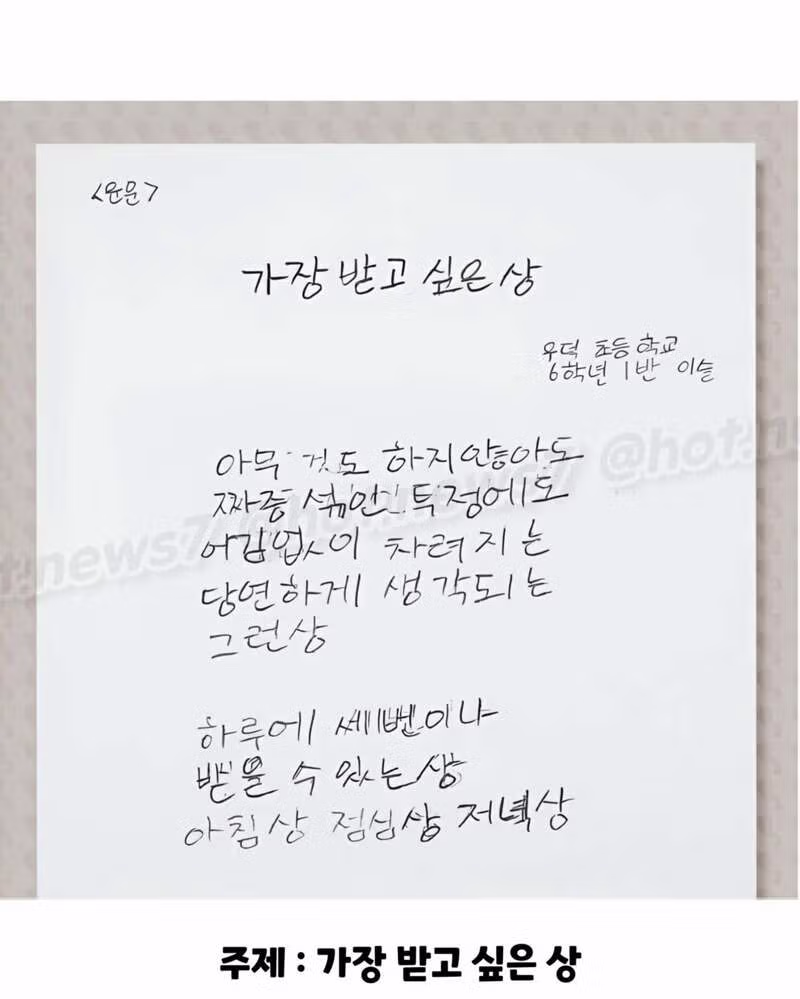 <운문>
가장 받고 싶은 상
우덕 초등학교
6학년 1반 이슬
아무 것도 하지 않아도
짜증 섞인 투정에도
어김없이 차려지는
당연하게 생각되는
그런상
하루에 세번이나
받을 수 있는 상
아침상 점심상 저녁상
주제 : 가장 받고 싶은 상